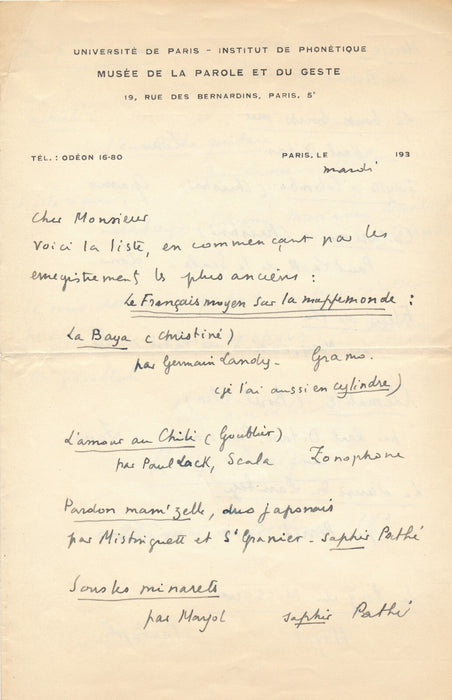 UNIVERSITÉ DE PARIS - INSTITUT DE PHONÉTIQUE
MUSÉE DE LA PAROLE ET DU GESTE
19, RUE DES BERNARDINS, PARIS, 5e
TÉL. : ODÉON 16-80 PARIS, LE 193
mardi
Cher Monsieur
Voici la liste, en commençant par les
enregistrement les plus anciens :
Le Français moyen sur la mappemonde :
La Baya (Christiné)
par Germain Landy - Gramo.
(je l'ai aussi en cylindre)
L'amour au Chili (Goublier)
par Paul Lack, Scala Zonophone
Pardon mam'zelle, duo japonais
par Mistinguett et St Granier - saphir Pathé
Sous les minarets
par Mayol saphir Pathé